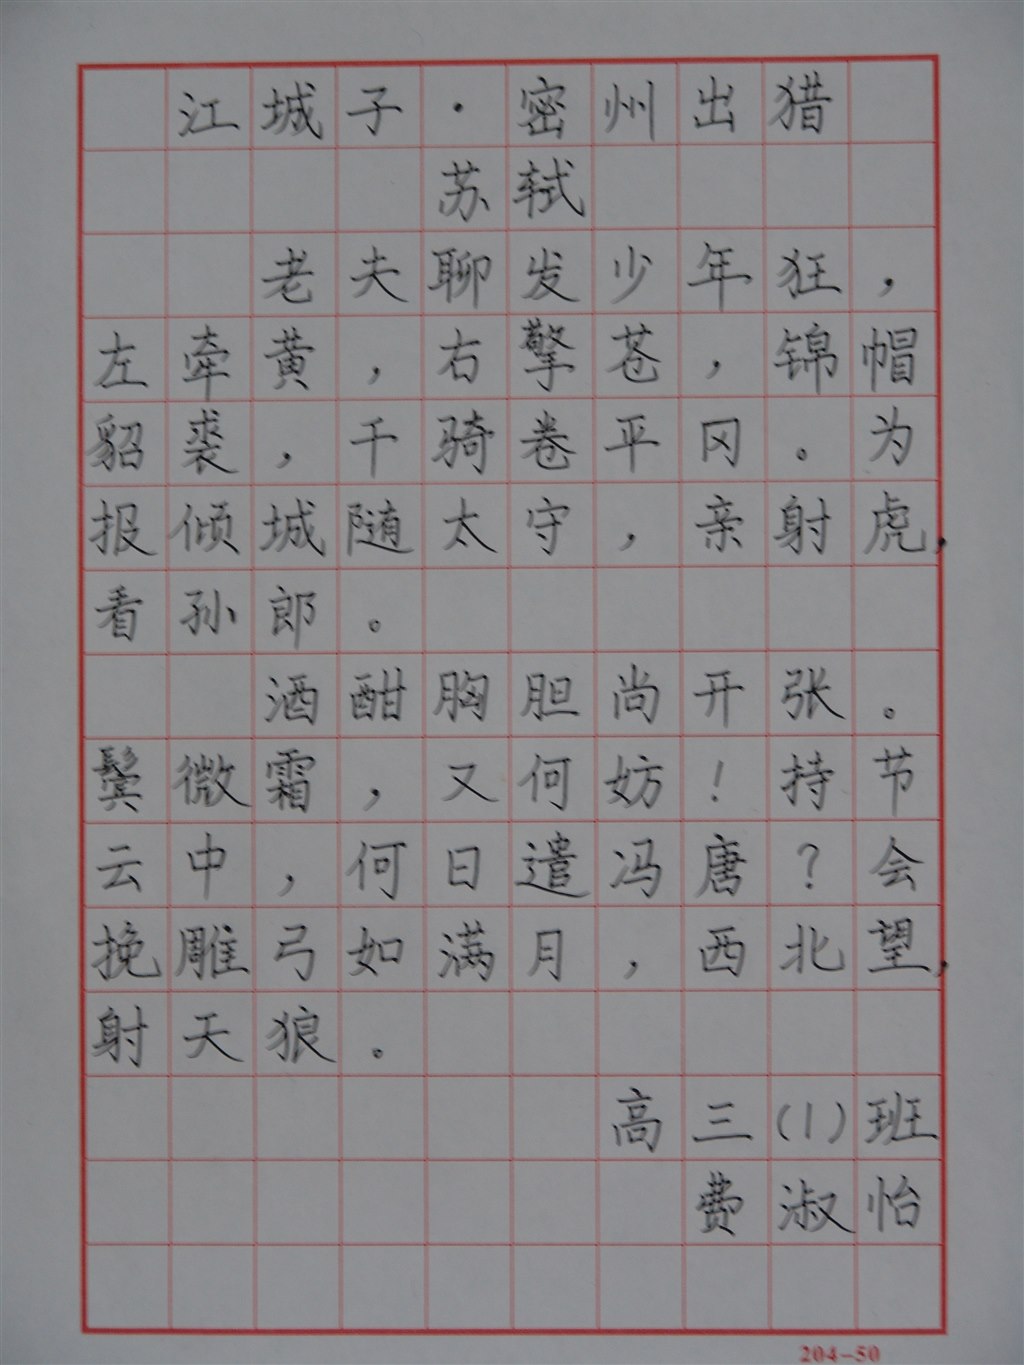 江城子·密州出猎
苏轼
老夫聊发少年狂，
左牵黄，右擎苍，锦帽
貂裘，千骑卷平冈。为
报倾城随太守，亲射虎，
看孙郎。
酒酣胸胆尚开张。
鬓微霜，又何妨！持节
云中，何日遣冯唐？会
挽雕弓如满月，西北望，
射天狼。
高三(1)班
费淑怡
204-50